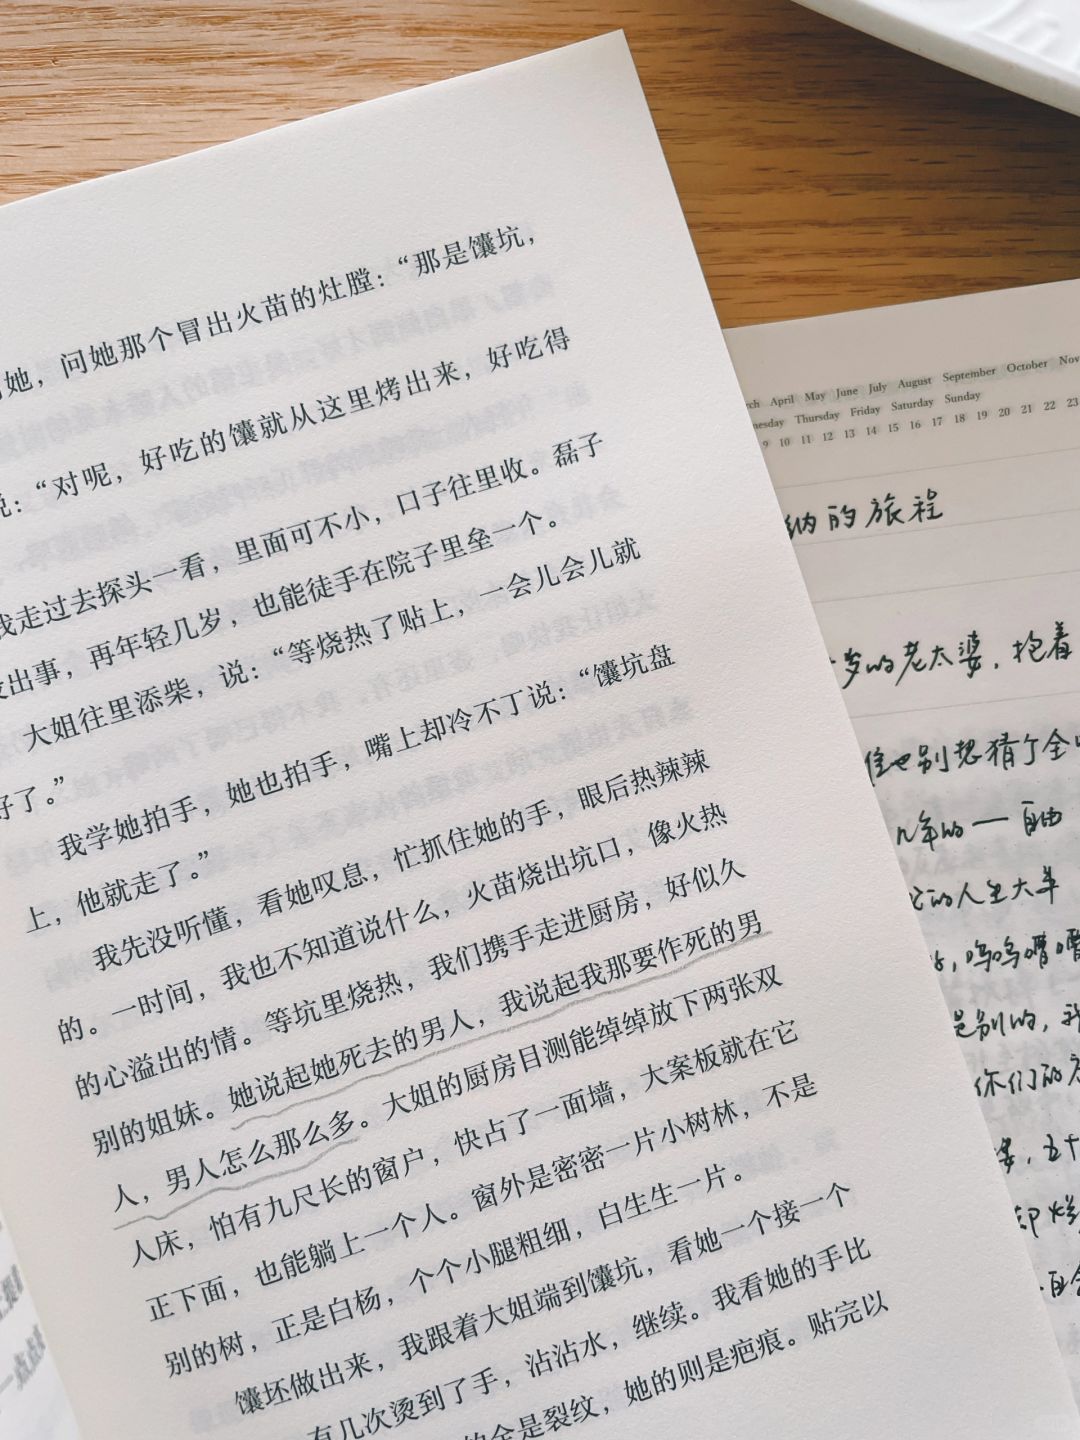 她，问她那个冒出火苗的灶膛：“那是馕坑，
说：“对呢，好吃的馕就从这里烤出来，好吃得
我走过去探头一看，里面可不小，口子往里收。磊子
出事，再年轻几岁，也能徒手在院子里垒一个。
大姐往里添柴，说：“等烧热了贴上，一会儿会儿就
好了。”
我学她拍手，她也拍手，嘴上却冷不丁说：“馕坑盘
上，他就走了。”
我先没听懂，看她叹息，忙抓住她的手，眼后热辣辣
的。一时间，我也不知道说什么，火苗烧出坑口，像火热
的心溢出的情。等坑里烧热，我们携手走进厨房，好似久
别的姐妹。她说起她死去的男人，我说起我那要作死的男
人，男人怎么那么多。大姐的厨房目测能绰绰放下两张双
人床，怕有九尺长的窗户，快占了一面墙，大案板就在它
正下面，也能躺上一个人。窗外是密密一片小树林，不是
别的树，正是白杨，个个小腿粗细，白生生一片。
馕坯做出来，我跟着大姐端到馕坑，看她一个接一个
有几次烫到了手，沾沾水，继续。我看她的手比
的全是裂纹，她的则是疤痕。贴完以
April May June July August September October Nov
Thursday Friday Saturday Sunday
9 10 11 12 13 14 15 16 17 18 19 20 21 22 23
纳的旅程
岁的老太婆，抱着
也别想猜个全
年的一自由
的人生大羊
呜呜嘈嘈
是别的，我
你们的
五十
却烂